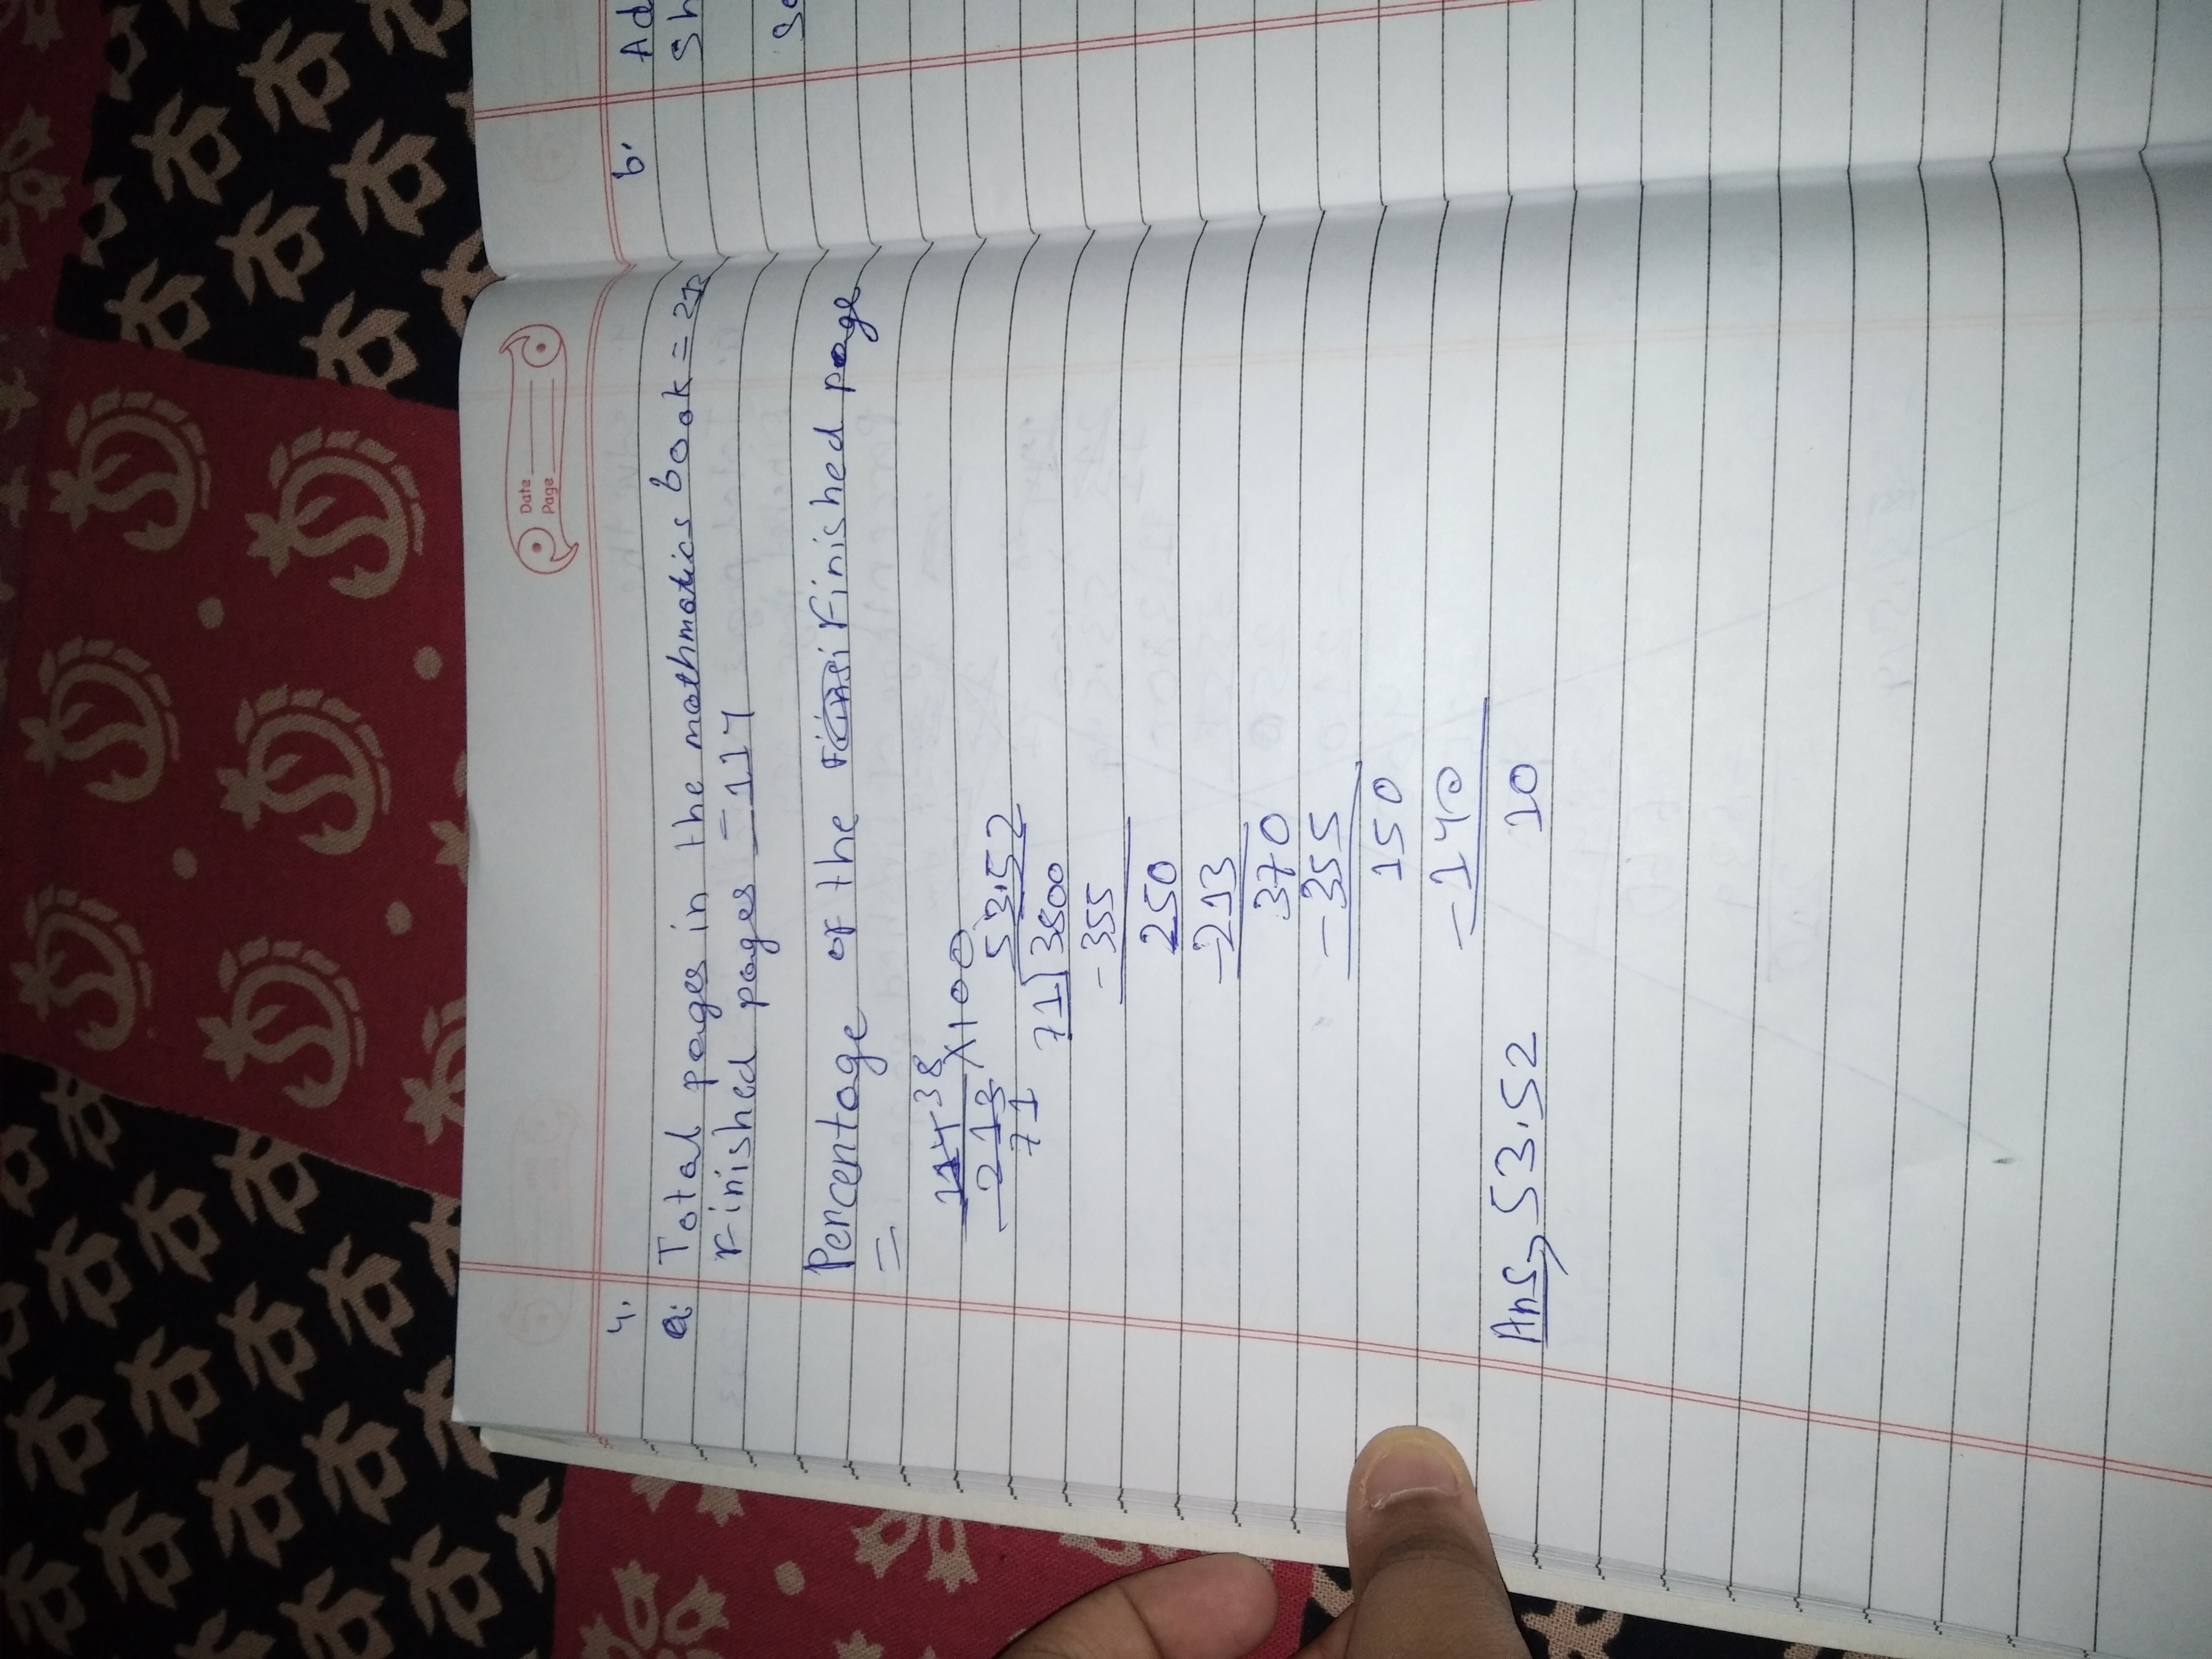 Date
Page
4.
a. Total pages in the mathmatics book = 21
Finished pages = 114
Percentage of the Finished page
=
114 38
213 X100
71
53.52
71 3800
-355
250
-213
370
-355
150
-140
10
Ans, 53.52
b. Ad
Sh